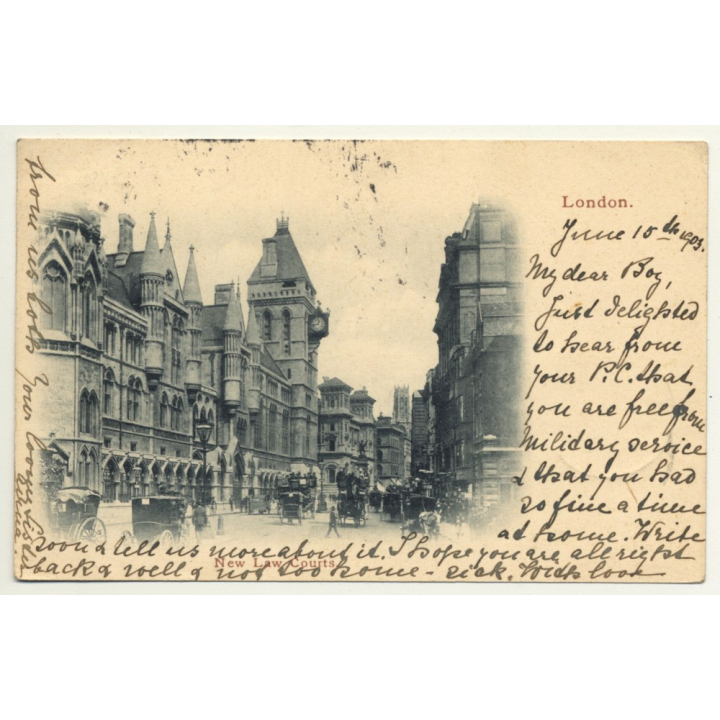 London.
June 15th 1903.
My dear Boy,
Just delighted
to hear from
your P.C. that
you are free from
Military service
& that you had
so fine a time
at home. Write
soon & tell us more about it. I hope you are all right
back & well & not too home-sick. With love
New Law Courts.
from us both Your loving sister